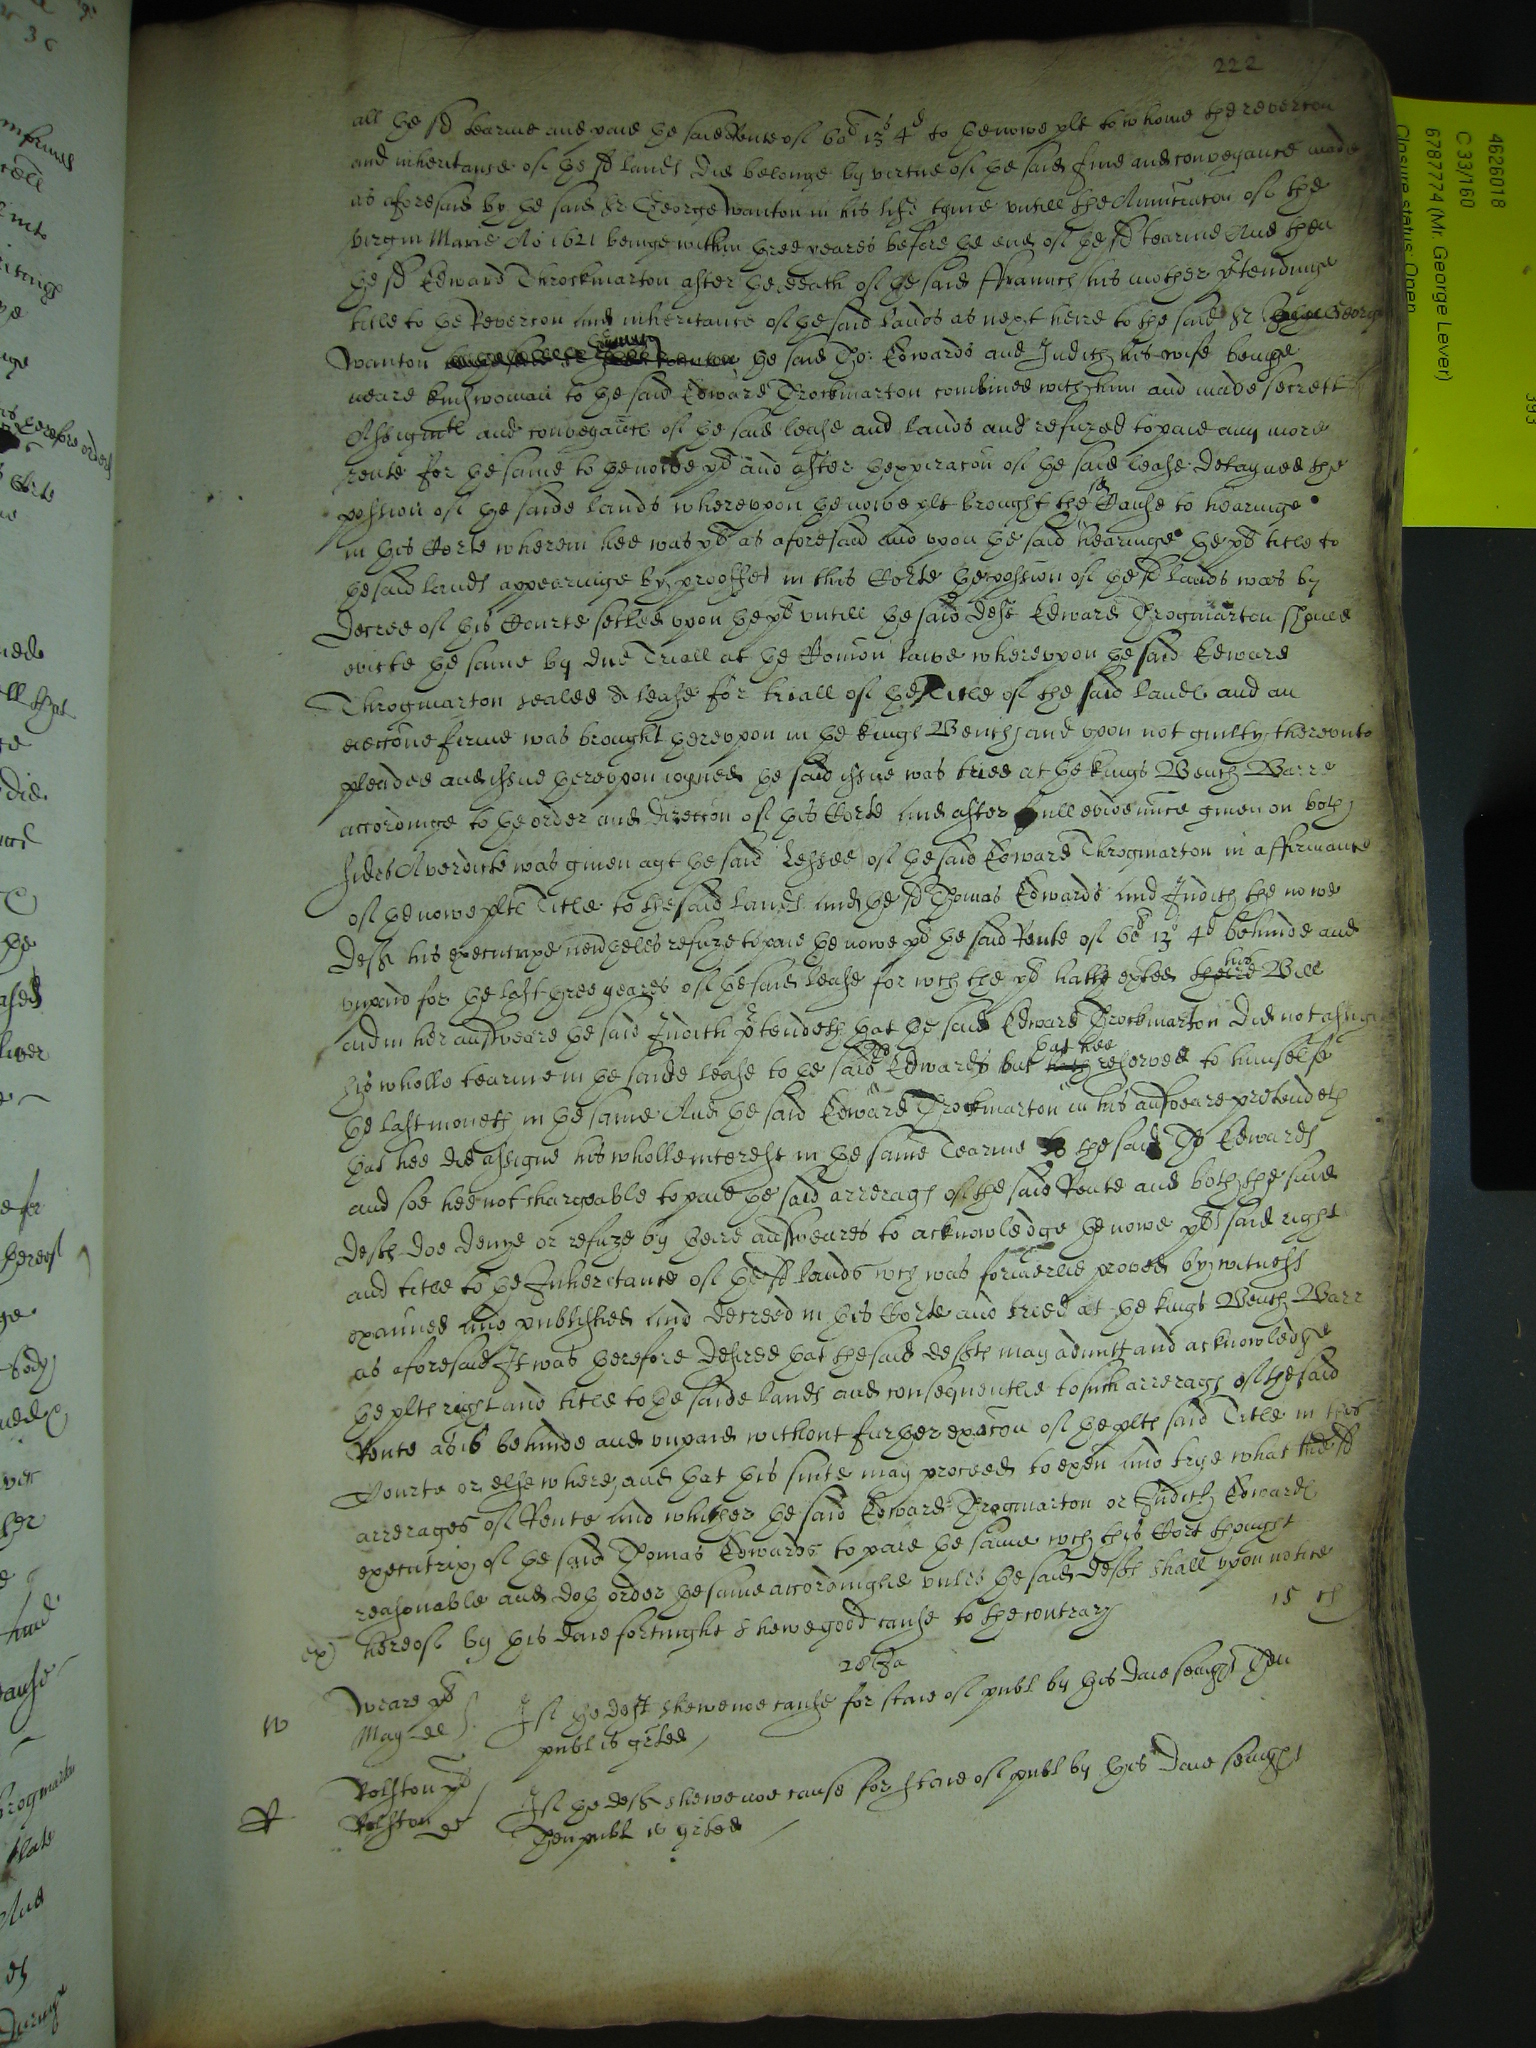 222
all the sd tearme and paie the said Rente of 60l 13s 4d to the nowe plt to whome the revercon
and inheritance of the sd lands did belonge by vertue of the said fine and conveyance made
as aforesaid by the said Sr George Wanton in his life tyme untill the Annunciacon of the
virgin Marie Ao 1621 beinge within three yeares before the end of the sd tearme And then
the sd Edward Throckmarton after the death of the said ffraunces his mother ptendinge
title to the Revercon and inheritance of the said lands as next heire to the said Sr George
Wanton the said Tho: Edwards and Judith his wife beinge
neare kinswoman to the said Edward Throckmarton combined with him and made secrett
Assignmte and conveyance of the said lease and lands and refuzed to paie any more
rente for the same to the nowe plt and after thexpiracon of the said lease detayned the
possion of the saide lands whereupon the nowe plt brought the sd Cause to hearinge
in this Corte wherein hee was plt as aforesaid and upon the said hearinge the plt title to
the said lands appearinge by prooffes in this Corte the possion of the sd lands was by
Decree of this Courte setled upon the plt untill the said Deft Edward Throgmarton should
evicte the same by due Triall at the Comon lawe whereupon the said Edward
Throgmarton sealed a lease for triall of the Title of the said lands and an
eieccone firme was brought thereupon in the kings Bench and upon not guilty thereunto
pleaded and issue thereupon ioyned the said issue was tried at the kings Bench Barre
accordinge to the order and direccon of this Corte and after full evidence given on both
sides A verdicte was given agt the said Lessee of the said Edward Throgmarton in affirmance
of the nowe plts Title to the said lands and the sd Thomas Edwards and Judith the nowe
Deft his executrixe nevtheles refuze to paie the nowe plt the said Rente of 60l 13s 4d behinde and
unpaid for the last three yeares of the said lease for wch the plt hath exhted his Bill
and in her answeare the said Judith ptendeth that the said Edward Throckmarton did not assigne
his wholle tearme in the saide lease to the said Tho Edwards but that hee reserved to himselfe
the last moneth in the same And the said Edward Throckmarton in his answeare pretendeth
that hee did assigne his wholle interest in the same Tearme to the said Tho Edwards
and soe hee not chargeable to paie the said arrerags of the said Rente and both the said
Defts doe denye or refuze by their answeares to acknowledge the nowe plts said right
and title to the Inheritance of the sd lands wch was formerlie proved by witness
examined and published and decreed in this Corte and tried at the kings Bench Barr
as aforesaid It was therefore desired that the said defts may admitt and acknowledge
the plts right and title to the saide lands and consequentlie to such arrerags of the said
Rente as is behinde and unpaid without further exacon of the plts said Title in this
Courte or elsewhere, and that this suite may proceed to exam and trye what the sd
arrerages of Rente and whither the said Edward Throgmarton or Judith Edwards
executrix of the said Thomas Edwards to paie the same wch this Cort thought
reasonable and doth order the same accordinglie unles the said Defts shall upon notice
ex) hereof by this daie fortnight shewe good cause to the contrary 15 ch
28 Ja
W Weare plt If the deft shewe noe cause for staie of publ by this daie senight then
May def publ is grted
R Rolston plt If the deft shewe noe cause for staie of publ by this daie senight
Rolston def then publ is grted
4626018
C 33/160
6787774 (Mr. George Lever)
Closure status: Open